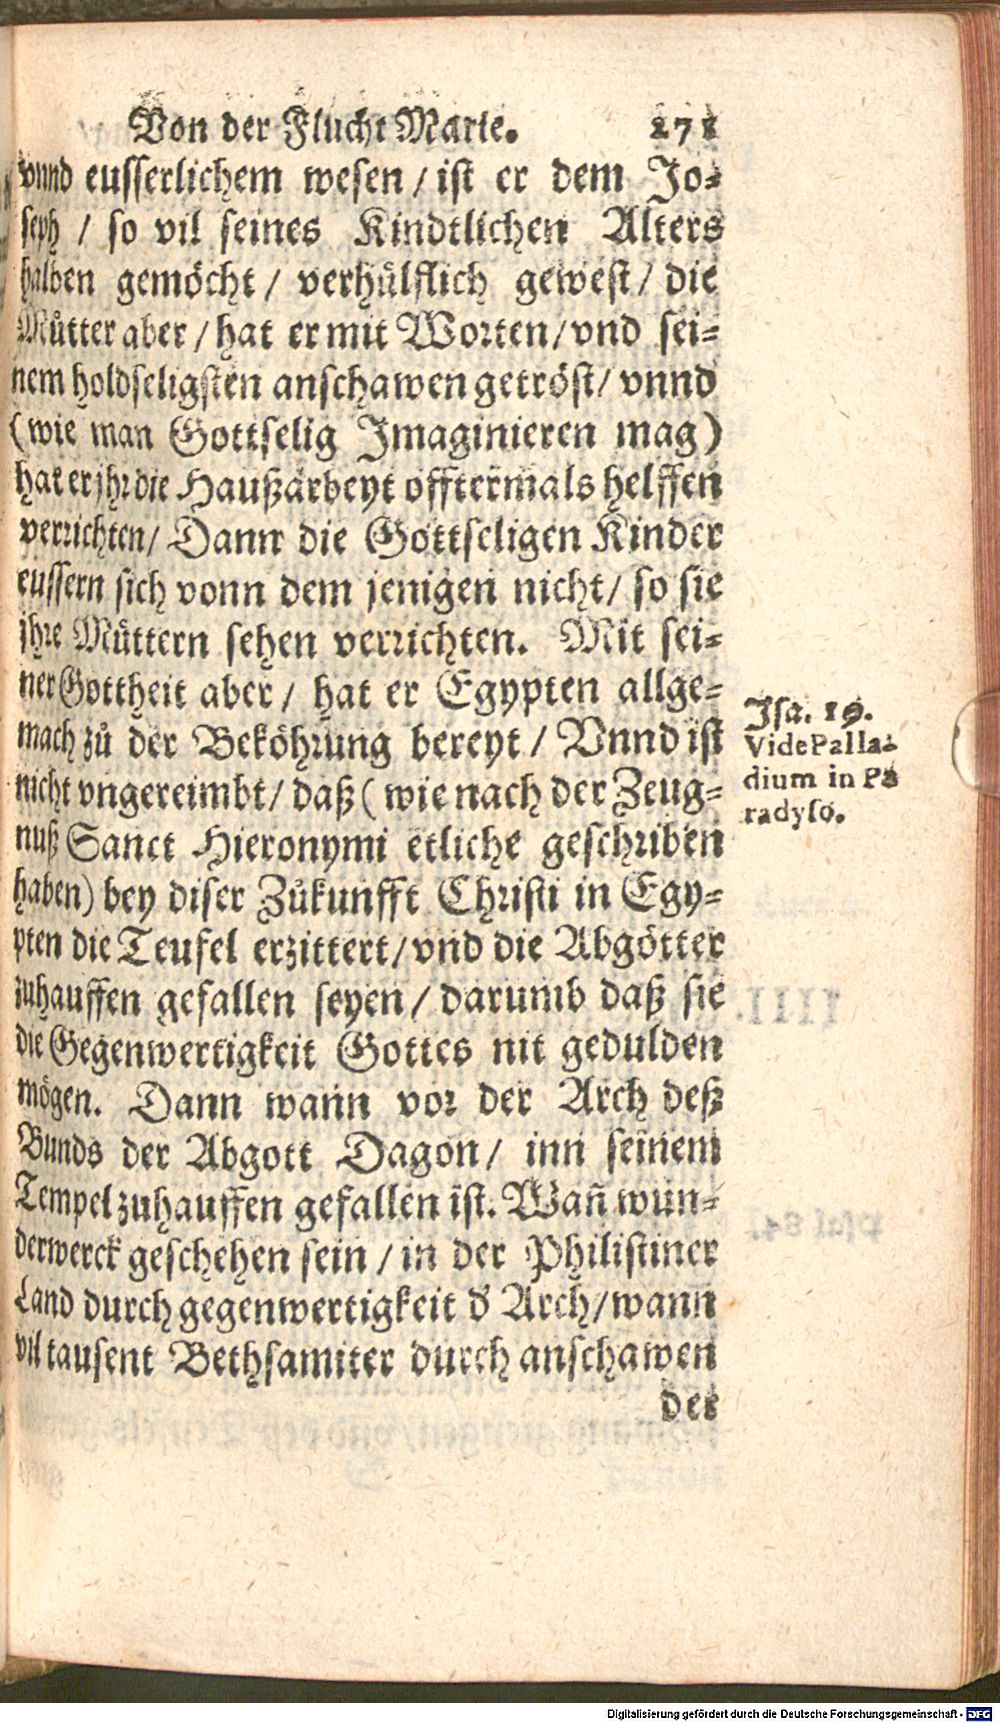 Von der Flucht Marie. 271
vnnd eusserlichem wesen / ist er dem Jo-
seph / so vil seines Kindtlichen Alters
halben gemöcht / verhülflich gewest / die
Můtter aber / hat er mit Worten / vnd sei-
nem holdseligsten anschawen getröst / vnnd
(wie man Gottselig Imaginieren mag)
hat er jhr die Haußarbeyt offtermals helffen
verrichten / Dann die Gottseligen Kinder
eussern sich vonn dem jenigen nicht / so sie
jhre Můttern sehen verrichten. Mit sei-
ner Gottheit aber / hat er Egypten allge-
mach zů der Beköhrung bereyt / Vnnd ist
nicht vngereimbt / daß (wie nach der Zeug-
nuß Sanct Hieronymi etliche geschriben
haben) bey diser Zůkunfft Christi in Egy-
pten die Teufel erzittert / vnd die Abgötter
zuhauffen gefallen seyen / darumb daß sie
die Gegenwertigkeit Gottes nit gedulden
mögen. Dann wann vor der Arch deß
Bunds der Abgott Dagon / inn seinem
Tempel zuhauffen gefallen ist. Wañ wun-
derwerck geschehen sein / in der Philistiner
Land durch gegenwertigkeit d' Arch / wann
vil tausent Bethsamiter durch anschawen
der
Isa. 19.
Vide Palla-
dium in Pa
radyso.
Digitalisierung gefördert durch die Deutsche Forschungsgemeinschaft - DFG